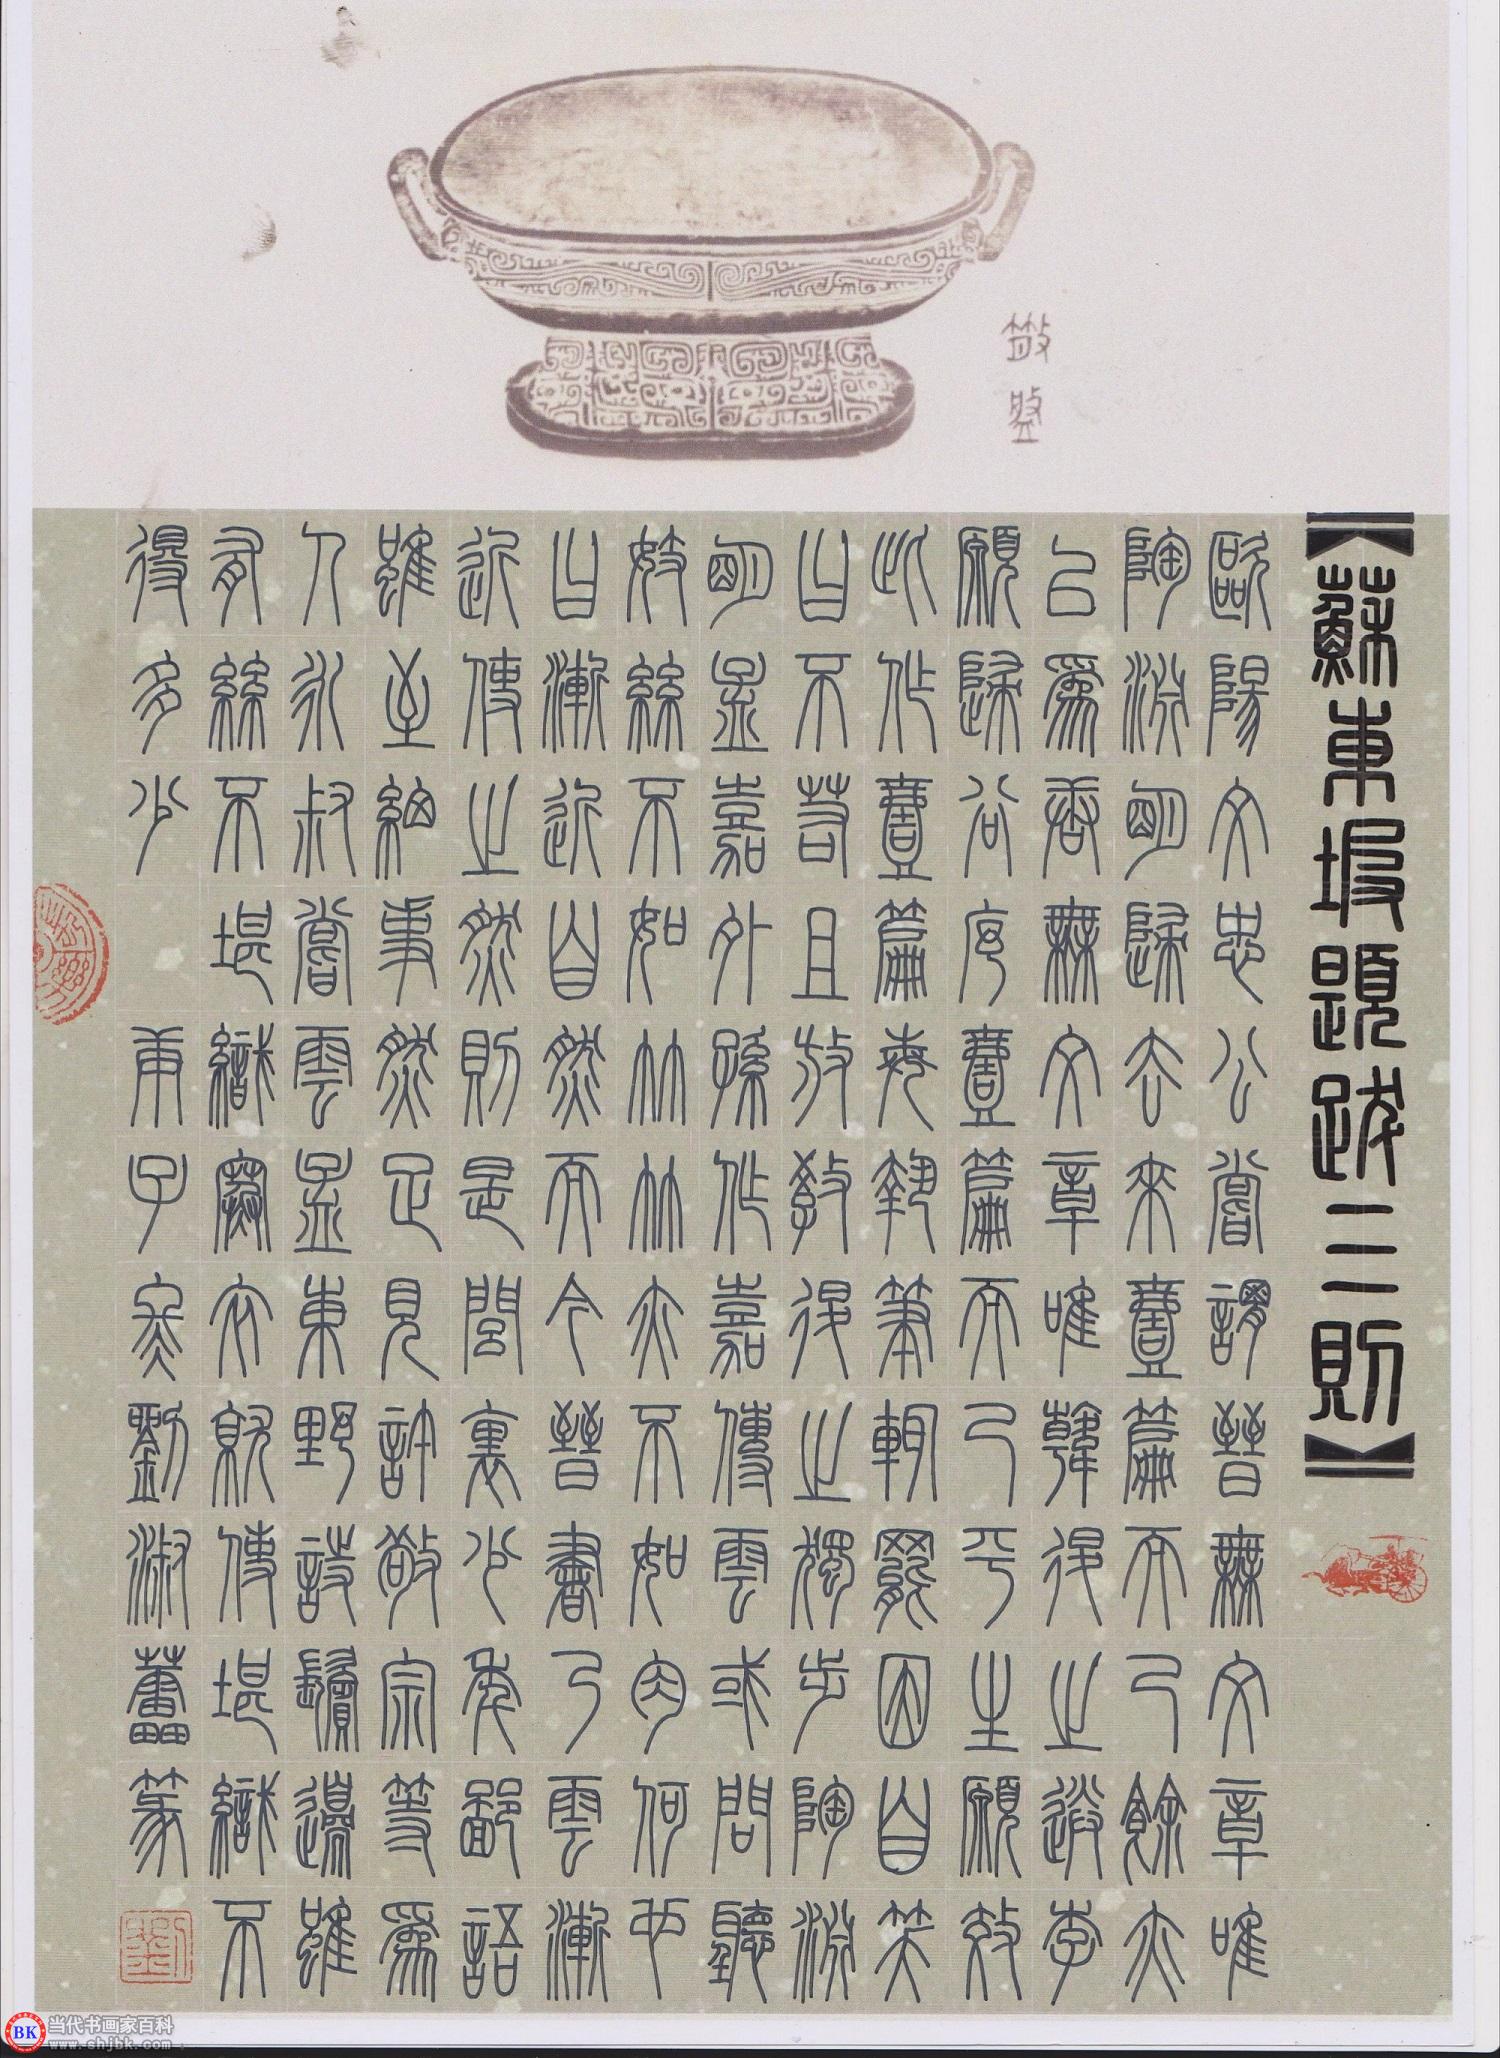 【蘇東坡題跋三則】
歐陽文忠公嘗謂晉無文章唯
陶淵明歸去來壹篇而已餘亦
以爲唐無文章唯韓退之送李
願歸谷序壹篇而已平生願效
此作壹篇每執筆輒罷因自笑
曰不若且放教退之獨步陶淵
明孟嘉外孫作嘉傳雲或問聽
妓絲不如竹竹亦不如肉何也
曰漸近自然而今晉書乃雲漸
近使之然則是閭裏少年鄙語
雖至細事然足見許敬宗等爲
人永叔嘗雲孟東野詩鬢邊雖
有絲不堪織寒衣就使堪織不
得多少 庚子劉淑篆
BK 当代书画家百科
www.shjbk.com